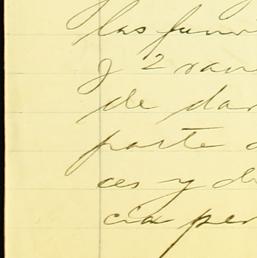 las fun
y 2 ran
de dar
parte
ces y de
cia per